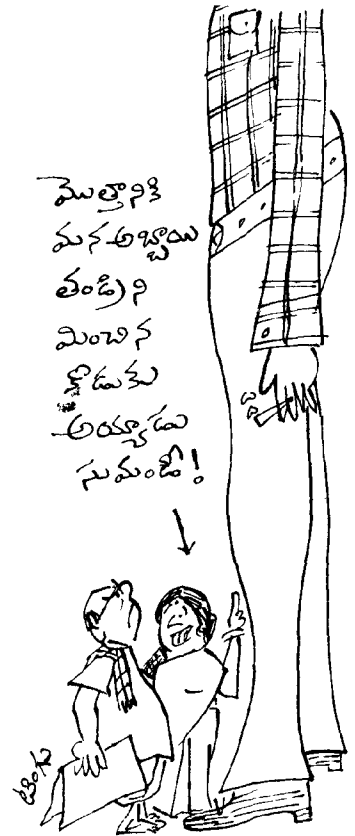 మొత్తానికి
మన అబ్బాయి
తండ్రిని
మించిన
కొడుకు
అయ్యాడు
సుమండీ!